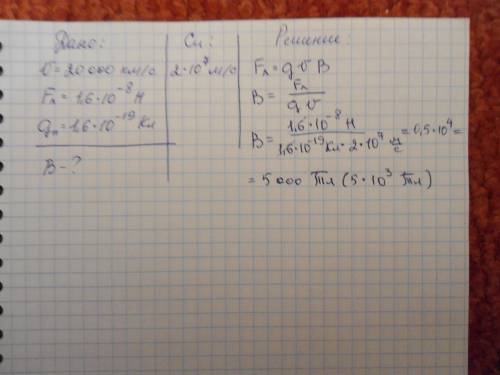 Дано:
υ = 20 000 км/с
Fл = 1,6·10⁻⁸ Н
qп = 1,6·10⁻¹⁹ Кл
В - ?
Си:
2·10⁷ м/с
Решение:
Fл = q υ B
B = Fл / q υ
B = 1,6·10⁻⁸ Н / 1,6·10⁻¹⁹ Кл · 2·10⁷ м/с = 0,5·10⁴ =
= 5 000 Тл (5·10³ Тл)